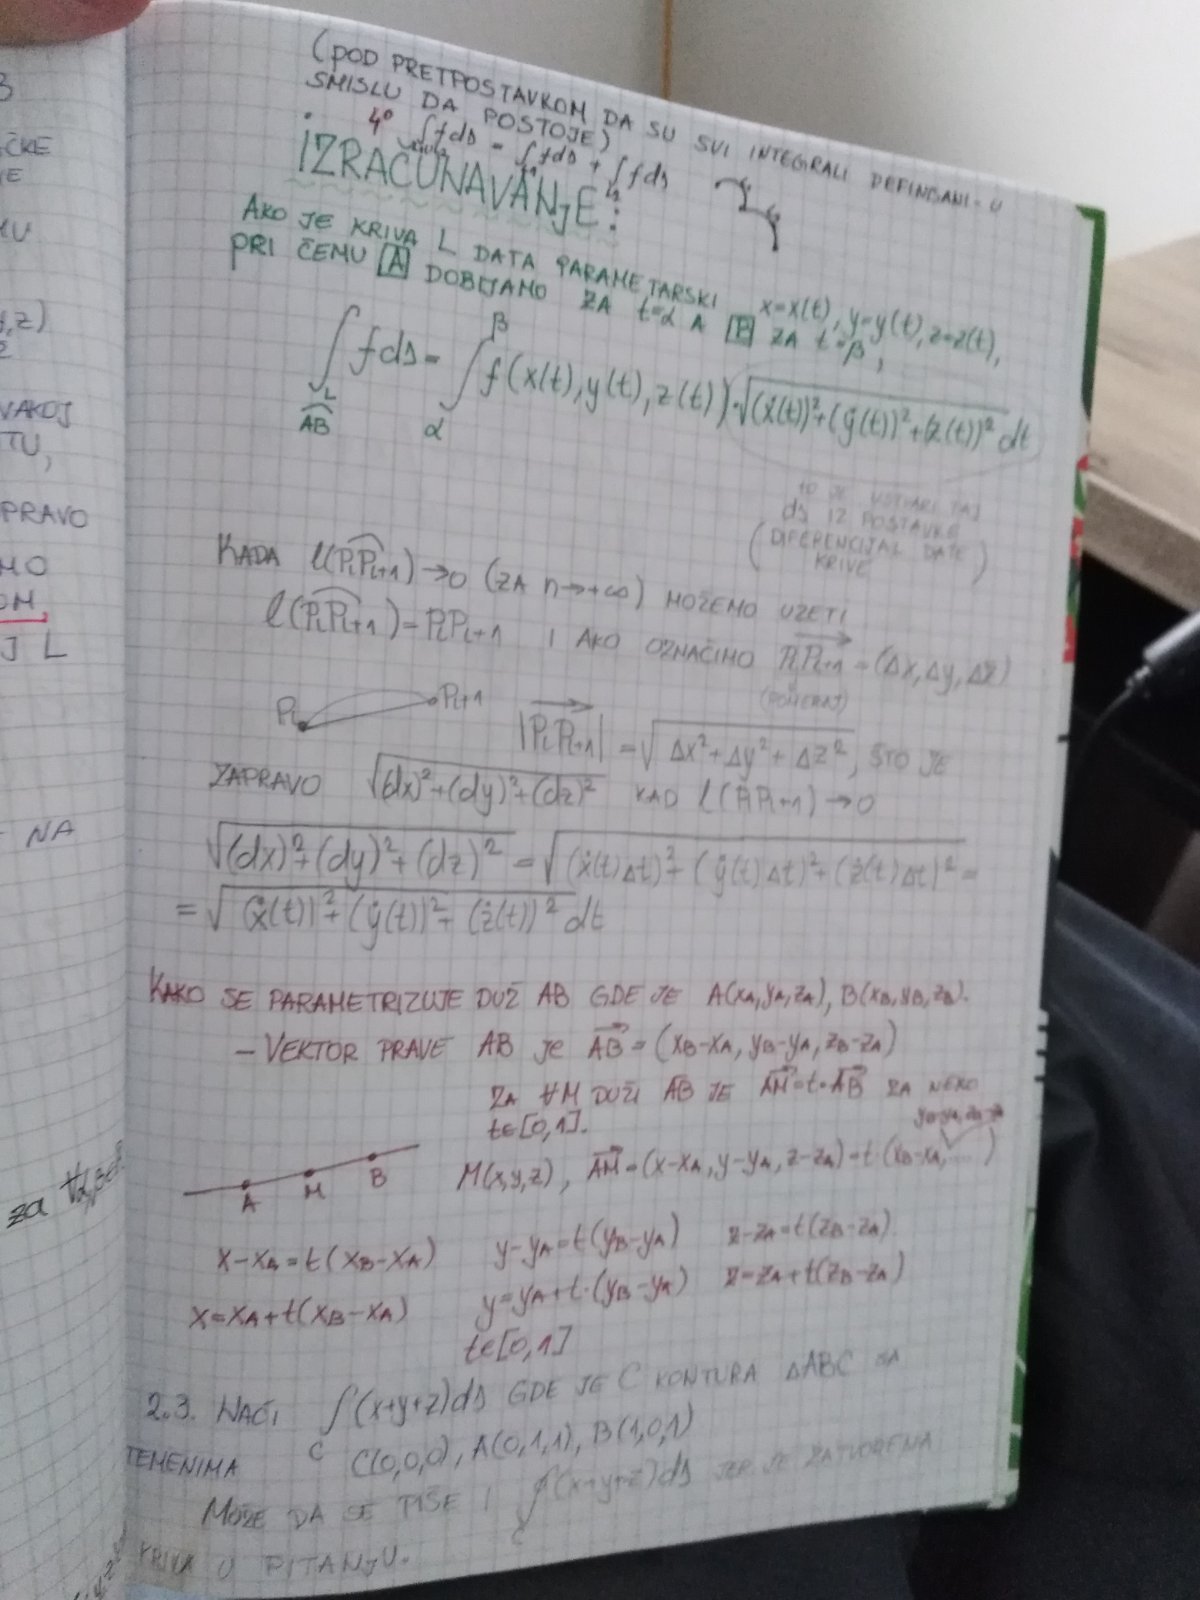 (POD PRETPOSTAVKOM DA SU SVI INTEGRALI DEFINISANI U
SMISLU DA POSTOJE)
4° ∫fds = ∫fds + ∫fds
IZRAČUNAVANJE:
AKO JE KRIVA L DATA PARAMETARSKI x=x(t), y=y(t), z=z(t),
PRI ČEMU A DOBIJAMO ZA t=α A B ZA t=β,
∫_L fds = ∫_α^β f(x(t), y(t), z(t))·√((ẋ(t))²+(ẏ(t))²+(ż(t))²) dt
AB
TO JE USTVARI TAJ
ds IZ POSTAVKE
(DIFERENCIJAL DATE
KRIVE)
KADA l(PiPi+1)→0 (ZA n→+∞) MOŽEMO UZETI
l(PiPi+1)=PiPi+1 I AKO OZNAČIMO PiPi+1 = (Δx, Δy, Δz)
(POMERAJ)
Pi Pi+1 |PiPi+1| = √(Δx²+Δy²+Δz²), ŠTO JE
ZAPRAVO √((dx)²+(dy)²+(dz)²) KAD l(PiPi+1)→0
√((dx)²+(dy)²+(dz)²) = √((ẋ(t)Δt)²+(ẏ(t)Δt)²+(ż(t)Δt)²) =
= √((ẋ(t))²+(ẏ(t))²+(ż(t))²) dt
KAKO SE PARAMETRIZUJE DUŽ AB GDE JE A(xA,yA,zA), B(xB,yB,zB).
- VEKTOR PRAVE AB JE AB = (xB-xA, yB-yA, zB-zA)
ZA ∀M DUŽI AB JE AM=t·AB ZA NEKO
t∈[0,1].
yB-yA, zB-zA
M(x,y,z), AM=(x-xA, y-yA, z-zA)=t·(xB-xA, ...)
A M B
x-xA=t(xB-xA) y-yA=t(yB-yA) z-zA=t(zB-zA)
x=xA+t(xB-xA) y=yA+t·(yB-yA) z=zA+t(zB-zA)
t∈[0,1]
2.3. NAĆI ∫_C (x+y+z)ds GDE JE C KONTURA ΔABC SA
TEMENIMA C(0,0,0), A(0,1,1), B(1,0,1)
MOŽE DA SE PIŠE I ∮_C (x+y+z)ds JER JE ZATVORENA
KRIVA U PITANJU.
3
ČKE
,z)
VAKOJ
TU,
PRAVO
MO
OM
J L
NA
za ∀